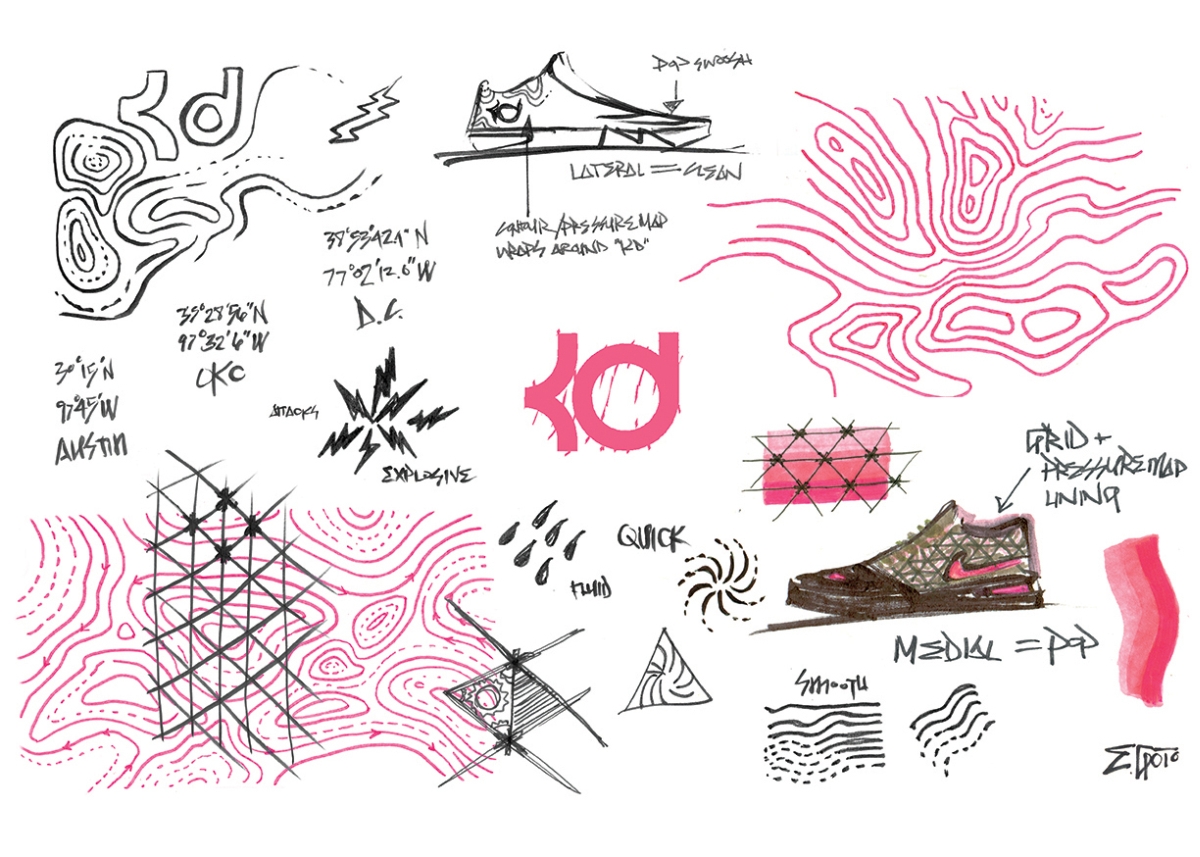 KD
POP SWOOSH
LATERAL = CLEAN
CONTOUR/PRESSURE MAP
WRAPS AROUND "KD"
38°53'42.1" N
77°02'12.0" W
D.C.
35°28'56"N
97°32'6"W
OKC
30°15'N
97°45'W
AUSTIN
ATTACKS
EXPLOSIVE
KD
KD
GRID +
PRESSURE MAP
LINING
QUICK
FLUID
MEDIAL = POP
SMOOTH